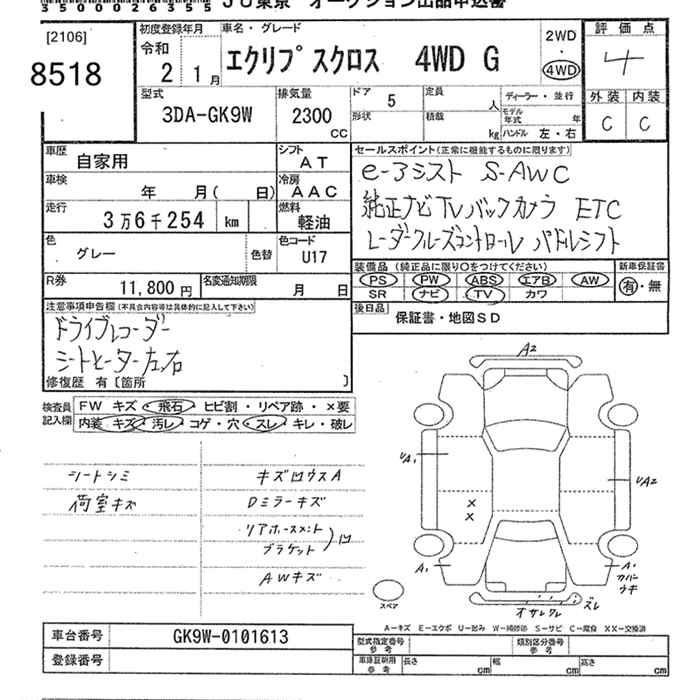 35000026355
JU東京 オークション出品申込書
[2106]
8518
初度登録年月
令和
2 1月
車名・グレード
エクリプスクロス 4WD G
2WD
・
4WD
評価点
4
外装 内装
C C
型式
3DA-GK9W
排気量
2300
CC
ドア 5
形状
定員 人
積載 kg
ディーラー・並行
モデル年式 年
ハンドル 左・右
車歴 自家用
シフト AT
車検 年 月( 日)
冷房 AAC
走行 3万6千254 km
燃料 軽油
色 グレー 色替
色コード U17
R券 11,800円
名変通知期限 月 日
セールスポイント(正常に機能するものに限ります)
e-アシスト S-AWC
純正ナビTVバックカメラ ETC
レーダークルーズコントロール パドルシフト
装備品(純正品に限り○をつけてください)
PS PW ABS エアB AW
SR ナビ TV カワ
新車保証書
有・無
後日品 保証書・地図SD
注意事項申告欄(不具合内容等は具体的に記入して下さい)
ドライブレコーダー
シートヒーター左右
修復歴 有〔箇所 〕
検査員記入欄
FW キズ・飛石・ヒビ割・リペア跡・×要
内装 キズ・汚レ・コゲ・穴・スレ・キレ・破レ
シートシミ
荷室キズ
キズ凹ウスA
Dミラーキズ
リアホースメント
ブラケット )凹
AWキズ
A2
A1
UA2
×
×
A1
A1
カバー
ウキ
ズレ
オサレクレ
スペア
A-キズ E-エクボ U-凹み W-補修跡 S-サビ C-腐食 XX-交換済
車台番号 GK9W-0101613
登録番号
型式指定番号
参考
類別区分番号
参考
車庫証明用
参考
長さ cm 幅 cm 高さ cm